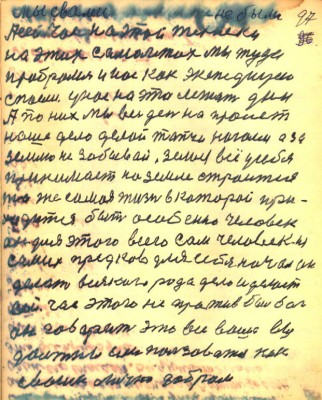 мы с вами не были 97
А сейчас на этой технеки
на этих самолётах мы туда
пробрался и как экспедицею
стоем. у нас на это лежат дни
А по них мы весь ден на пролёт
наше дело делой топчи ногами а за
землю не забывай, земля всё у себя
принимает на земле строится
та же самая жизь в которой при-
ходится быт особенно человек
он для этого всего сам человек и
самих предков для себя начал он
делат всякого рода дело и делает
сой час этого не против был бог
он говарит это всё ваше вы
должны им ползоватся как
своим лично добром